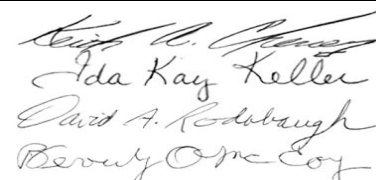 Keith A.
Ida Kay Keller
David A. Rodabaugh
Beverly O McCoy